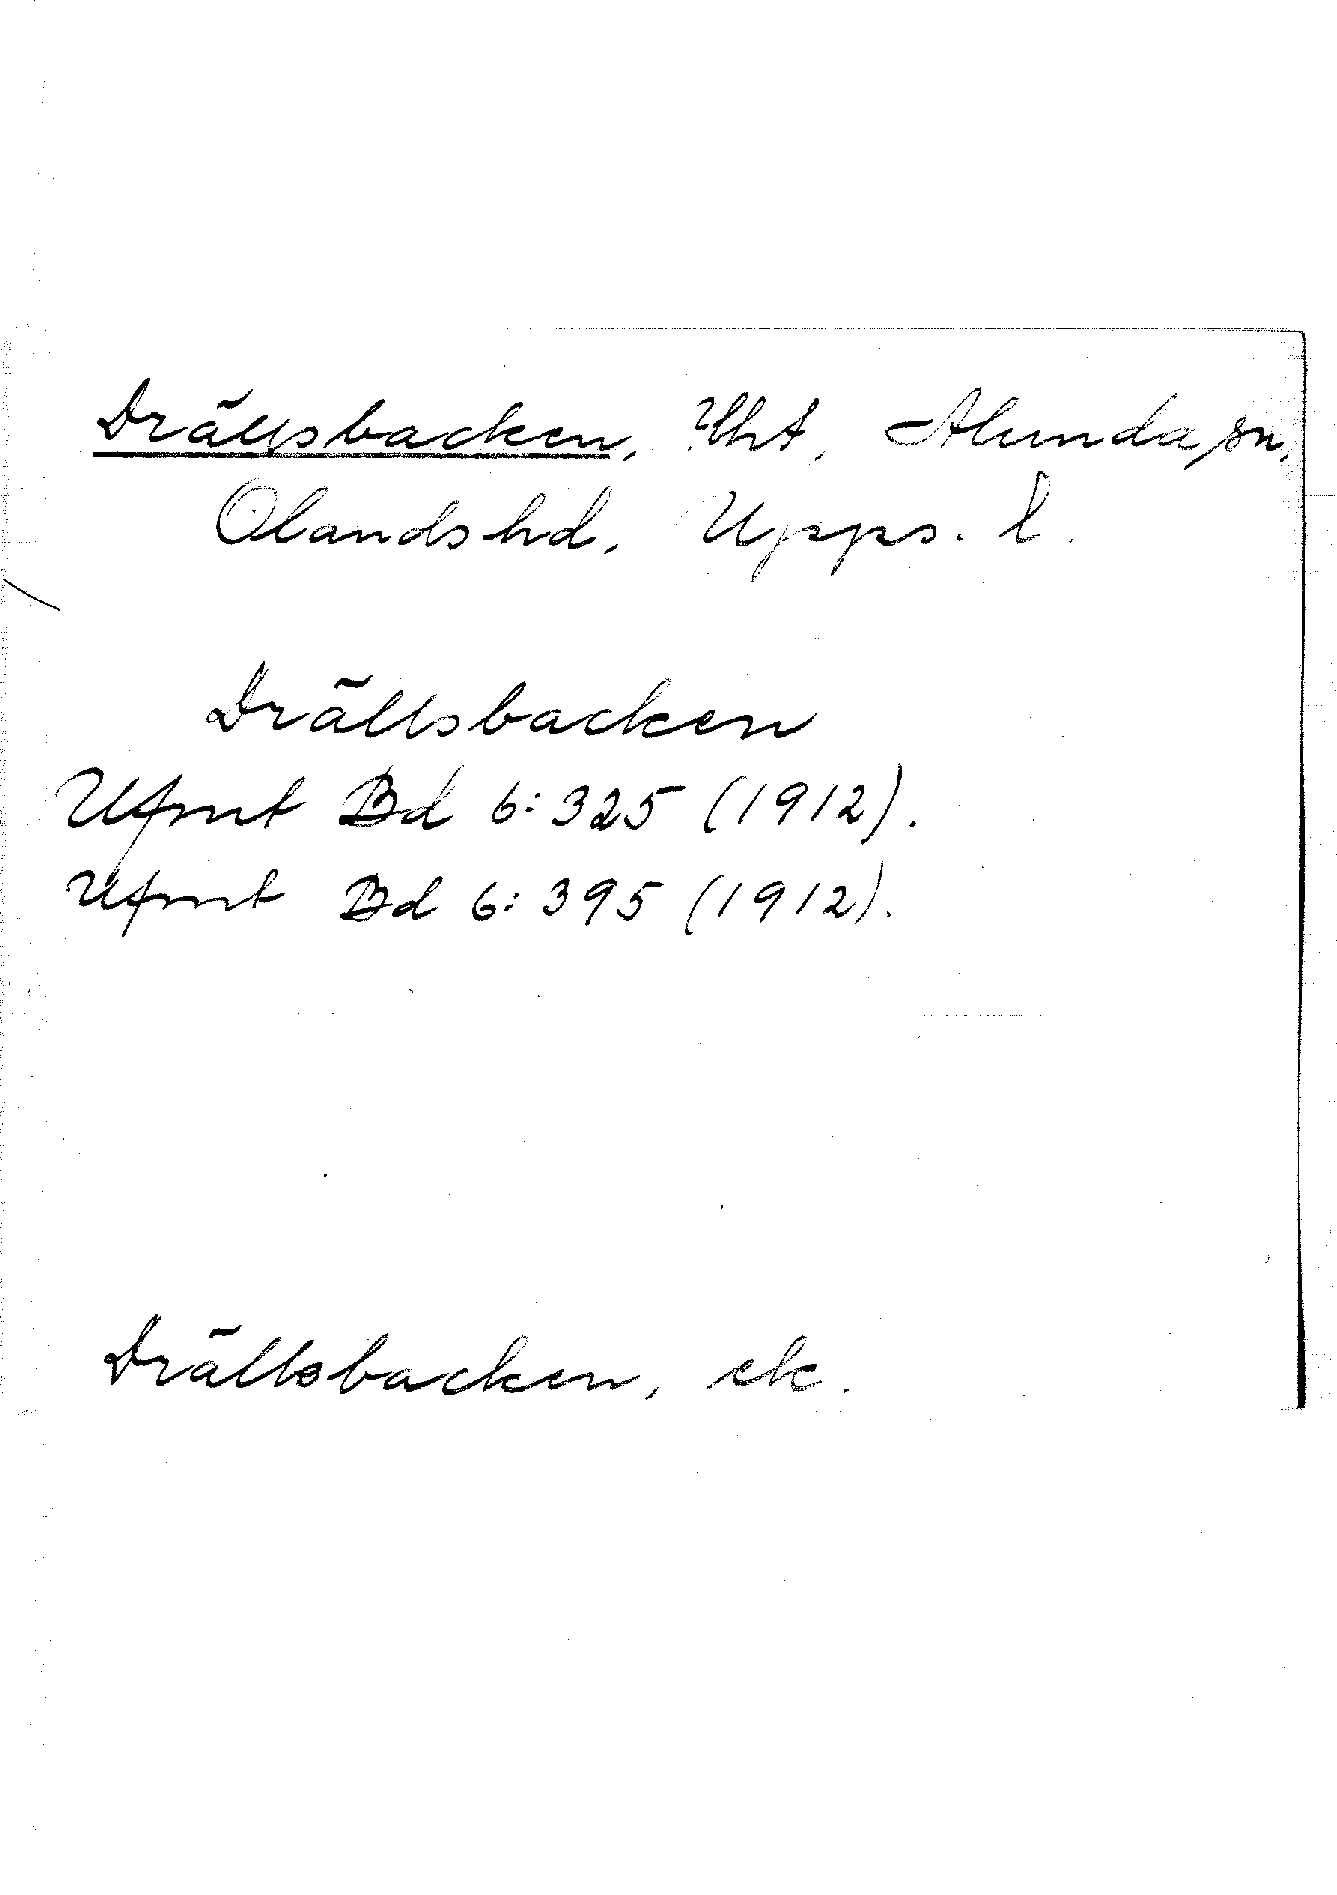 Drällsbacken, lht, Alunda sn,
Olands hd, Upps. l.
Drällsbacken
Ufmt Bd 6:325 (1912).
Ufmt Bd 6:395 (1912).
Drällsbacken, ek.